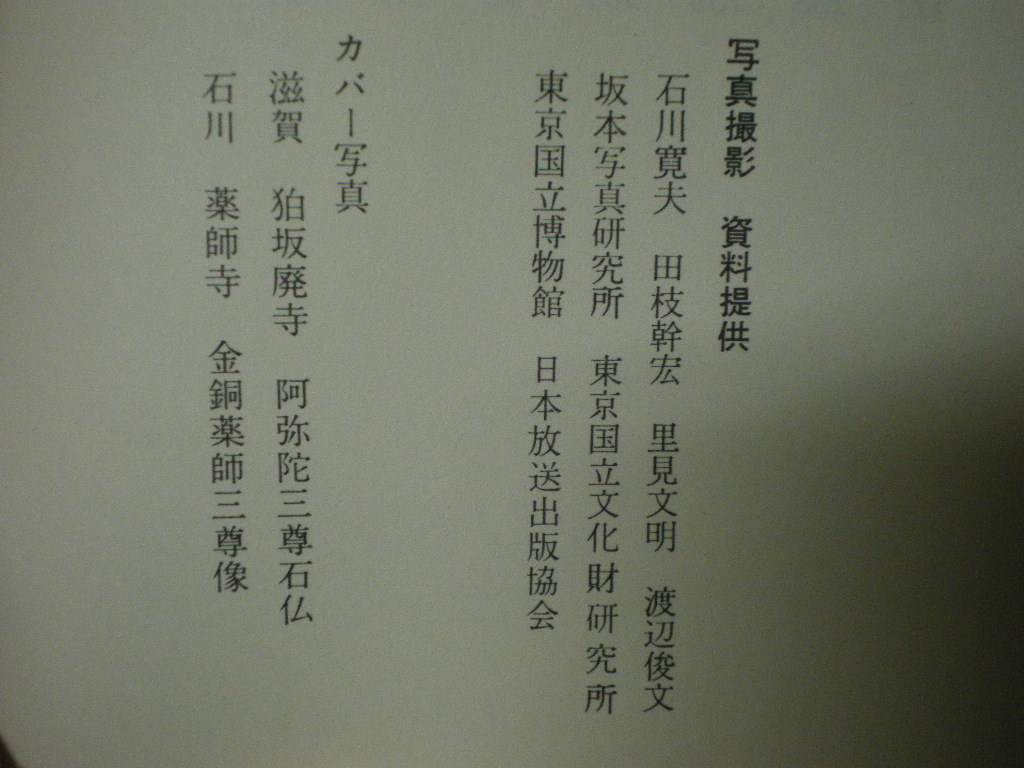 写真撮影　資料提供
石川寛夫　田枝幹宏　里見文明　渡辺俊文
坂本写真研究所　東京国立文化財研究所
東京国立博物館　日本放送出版協会
カバー写真
滋賀　狛坂廃寺　阿弥陀三尊石仏
石川　薬師寺　金銅薬師三尊像